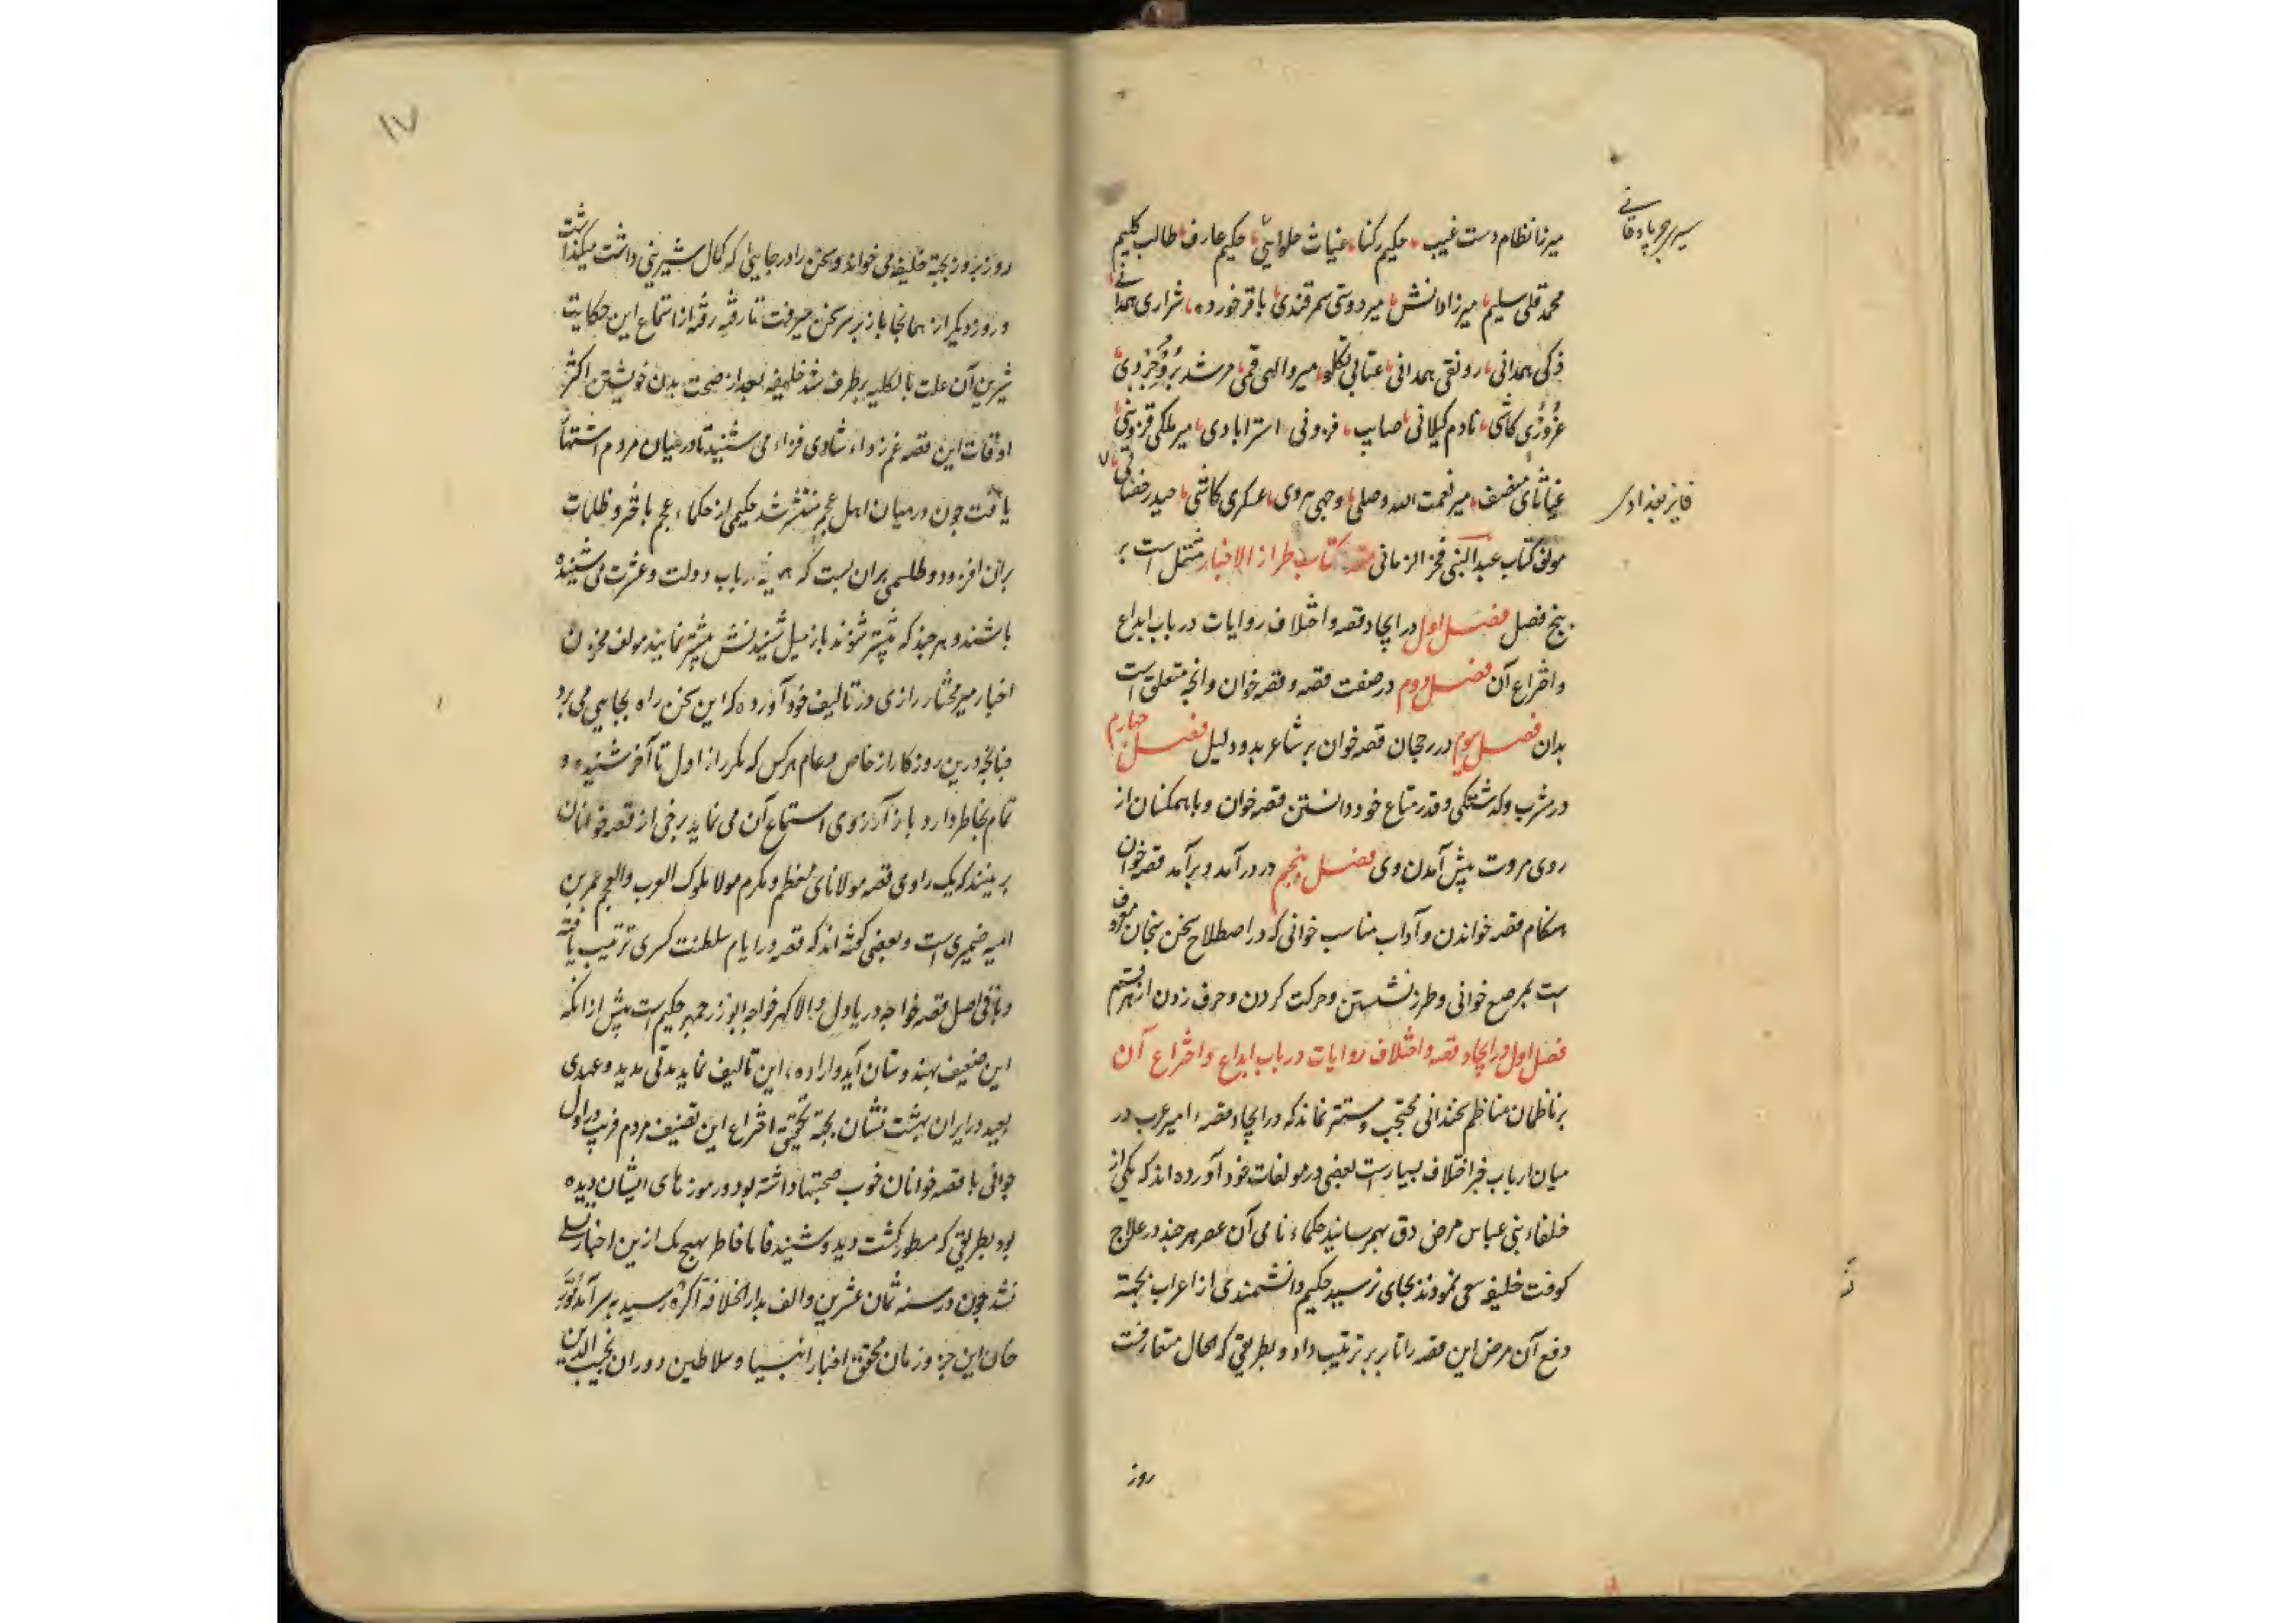 میرزا نظام دست غیب، حکیم رکنا، غیاث حلوایی، حکیم عارف، طالب کلیم
محمد قلی سلیم، میرزا دانش، میر دوستی سمرقندی، باقر خورده، شراری همدانی
ذکی همدانی، رونقی همدانی، عتابی تکلو، میر والهی قمی، مرشد بروجردی
غروری کاشی، نادم کیلانی، صایب، فزونی استرابادی، میر ملکی قزوینی
غیاثای منصف، میر نعمت الله وصلی، وجهی هروی، عسکری کاشی، حیدر خصالی
فایز بغدادی
مولف کتاب عبد النبی فخر الزمانی مقدمه کتاب طراز الاخبار مشتمل است بر
پنج فصل فصل اول در ایجاد قصه و اختلاف روایات در باب ابداع
و اختراع آن فصل دوم در صفت قصه و قصه خوان و انچه متعلق است
بدان فصل سوم در رجحان قصه خوان بر شاعر بدو دلیل فصل چهارم
در مشرب وکه شتکی و قدر متاع خود دانستن قصه خوان و با همکنان از
روی مروت پیش آمدن وی فصل پنجم در در آمد و بر آمد قصه خوان
هنکام قصه خواندن و آداب مناسب خوانی که در اصطلاح سخن سنجان معروف
است بمرصع خوانی و طرز نشستن و حرکت کردن و حرف زدن از هر قسم
فصل اول در ایجاد قصه و اختلاف روایات در باب ابداع و اختراع آن
بر ناظمان مناظم سخندانی محتجب و مستتر نماند که در ایجاد قصهء امیر عرب در
میان ارباب خبر اختلاف بسیار است بعضی در مولفات خود آورده اند که یکی از
خلفاء بنی عباس مرض دق بهم رسانید حکماء نامی آن عصر هر چند در علاج
کوفت خلیفه سعی نمودند بجای نرسید حکیم دانشمندی از اعراب بجهة
دفع آن مرض این قصه را تا بر بر ترتیب داد و بطریقی که الحال متعارفست
روز
۱۷
روز بروز بجهة خلیفه می خواند و سخن را در جایی که کمال شیرینی داشت میکذاشت
و روز دیکر از همانجا باز بر سر سخن میرفت تا رفته رفته از استماع این حکایت
شیرین آن علت بالکلیه بر طرف شد خلیفه بعد از صحت بدن خویشتن اکثر
اوقات این قصه غم زداء شادی فزاء می شنید تا در میان مردم اشتهار
یافت چون در میان اهل عجم منتشر شد حکیمی از حکماء عجم باختر و ظلمات
بران افزود و طلسمی بران بست که ارباب دولت و عشرت می شنیده
باشند و هر چند که بیشتر شنوند باز میل شنیدنش بیشتر نمایند مولف مخزن
اخبار میر مختار رازی در تالیف خود آورده که این سخن راه بجایی می برد
چنانچه درین روزکار از خاص و عام هر کس که مکرر از اول تا آخر شنیده و
تمام بخاطر دارد باز آرزوی استماع آن می نماید برخی از قصه خوانان
بر منند که یک راوی قصه مولانای معظم و مکرم مولا ملوک العرب والعجم عمر بن
امیه ضمیری است و بعضی کفته اند که قصه در ایام سلطنت کسری ترتیب یافته
و بانی اصل قصه خواجه دریا دل والا کهر خواجه ابوزرجمهر حکیم است پیش از انکه
این ضعیف بهندوستان آید و ارادهء این تالیف نماید مدتی مدید و عهدی
بعید در ایران بهشت نشان بجهة تحقیق اختراع این تصنیف مردم فریب در اول
جوانی با قصه خوانان خوب صحبتها داشته بود و رموز های ایشان دیده
بود بطریقی که مسطور کشت دید و شنید فاما خاطر بهیچ یک ازین اخبار تسلی
نشد چون در سنه ثمان عشرین و الف بدار الخلافه آکره رسید به سر آمد
خان این جزو زمان محقق اخبار انبیا و سلاطین دوران نجیب الدین